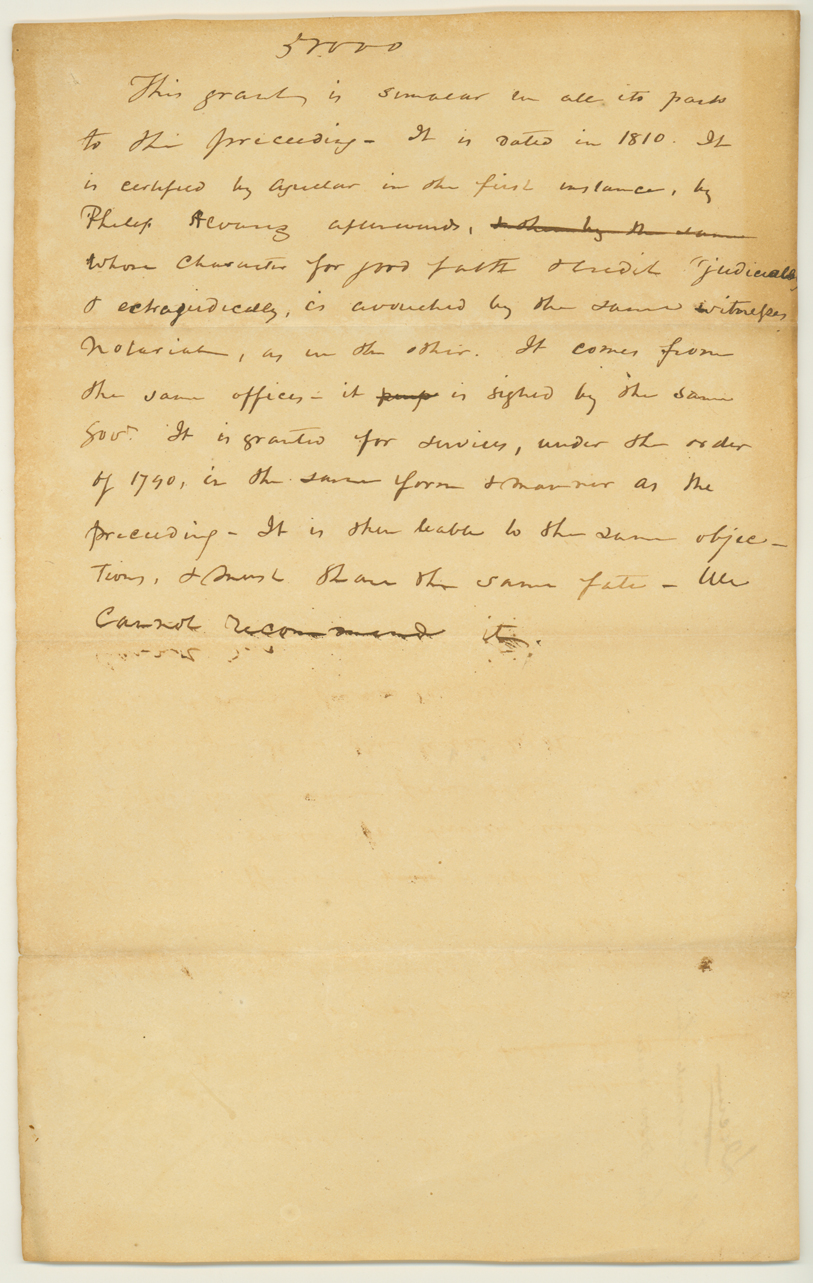 52000
This grant is similar in all its parts
to the preceeding - It is dated in 1810. It
is certified by Aguilar in the first instance, by
Philip Alvarez afterwards, & then by the same
whose character for good faith & credit "judicially
& extrajudicially, is avouched by the same witnesses
Notarial, as in the other. It comes from
the same offices - it is signed by the same
Govr. It is granted for services, under the order
of 1790, in the same form & manner as the
preceeding - It is then liable to the same objec-
tions, & must share the same fate - We
Cannot recommend it.